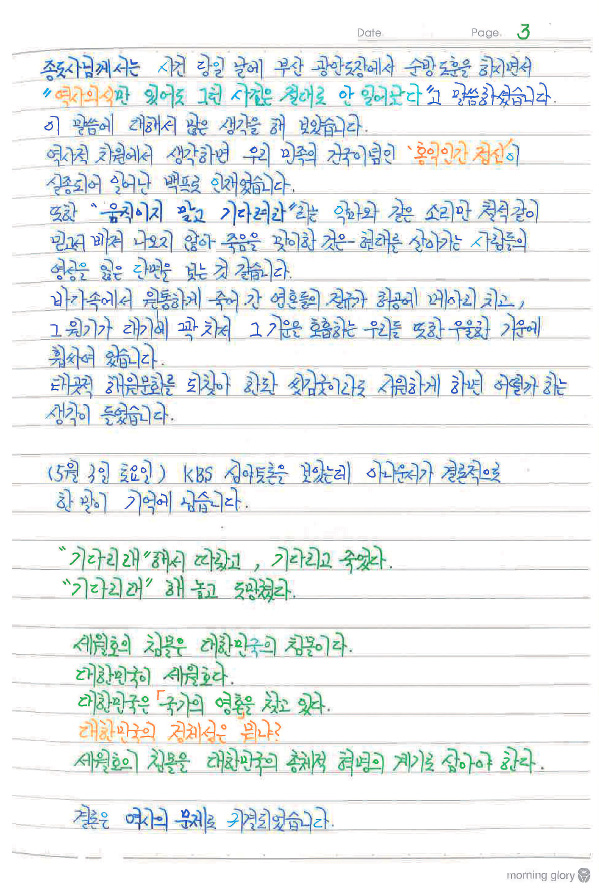 Date Page. 3
종도사님께서는 사건 당일 날에 부산 광안도장에서 순방도훈을 하시면서
"역사의식만 있어도 그런 사건은 절대로 안 일어난다"고 말씀하셨습니다.
이 말씀에 대해서 많은 생각을 해 보았습니다.
역사적 차원에서 생각하면 우리 민족의 건국이념인 '홍익인간 정신'이
실종되어 일어난 백프로 인재였습니다.
또한 "움직이지 말고 기다려라"라는 악마와 같은 소리만 철썩같이
믿고서 빠져 나오지 않아 죽음을 맞이한 것은 현대를 살아가는 사람들의
영성을 잃은 단면을 보는 것 같습니다.
바다속에서 원통하게 죽어 간 영혼들의 절규가 허공에 메아리 치고,
그 원기가 대기에 꽉 차서 그 기운을 호흡하는 우리들 또한 우울한 기운에
휩싸여 왔습니다.
태곳적 해원문화를 되찾아 한판 씻김굿이라도 시원하게 하면 어떨까 하는
생각이 들었습니다.
(5월 3일 토요일) KBS 심야토론을 보았는데 아나운서가 결론적으로
한 말이 기억에 남습니다.
"기다리래"해서 따랐고, 기다리고 죽었다.
"기다리래" 해 놓고 도망쳤다.
세월호의 침몰은 대한민국의 침몰이다.
대한민국이 세월호다.
대한민국은 「국가의 영혼을 찾고 있다.
대한민국의 정체성은 뭐냐?
세월호의 침몰을 대한민국의 총체적 혁명의 계기로 삼아야 한다.
결론은 역사의 문제로 귀결되었습니다.
morning glory